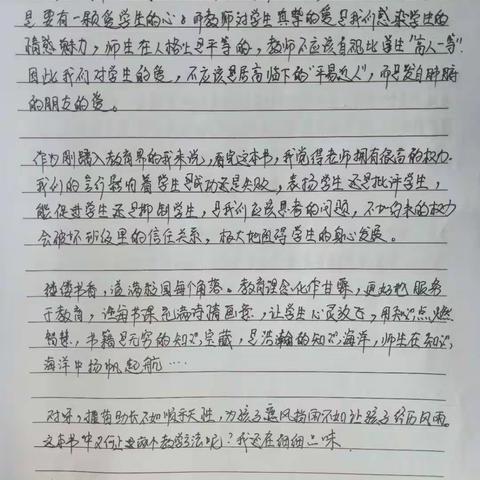 是要有一颗爱学生的心。即教师对学生真挚的爱是我们感染学生的
情感魅力，师生在人格上是平等的，教师不应该自视比学生“高人一等”
因此我们对学生的爱，不应该是居高临下的“平易近人”，而是发自肺腑
的朋友的爱。
作为刚踏入教育界的我来说，看完这本书，我觉得老师拥有很高的权力.
我们的言行影响着学生是成功还是失败，表扬学生还是批评学生，
能促进学生还是抑制学生，是我们应该思考的问题，不加约束的权力
会破坏班级里的信任关系，极大地阻碍学生的身心发展。
缕缕书香，溢满校园每个角落。教育理念化作甘霖，更好地服务
于教育，让每节课充满诗情画意，让学生心灵放飞，用知识点燃
智慧，书籍是无穷的知识宝藏，是浩瀚的知识海洋，师生在知识
海洋中扬帆起航…
对呀，揠苗助长不如顺乎天性，为孩子遮风挡雨不如让孩子经历风雨。
这本书中又何止这两个教学方法呢？我还在细细品味